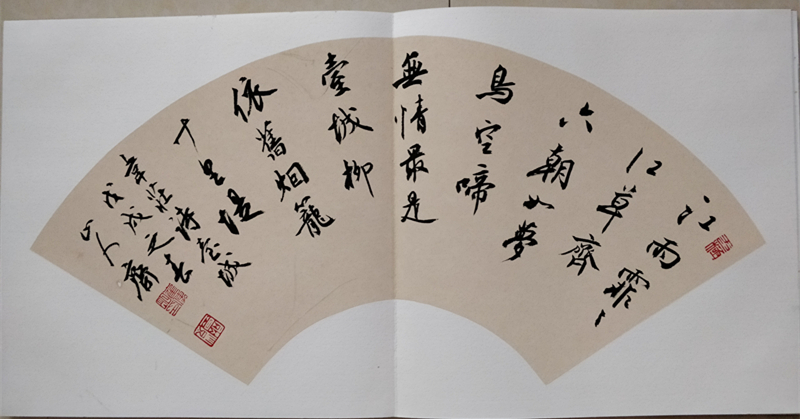 江雨霏〻
江草齊
六朝如夢
鳥空啼
無情最是
臺城柳
依舊烟籠
十里堤 臺城
韋莊詩
戊戌之春
山人 齋